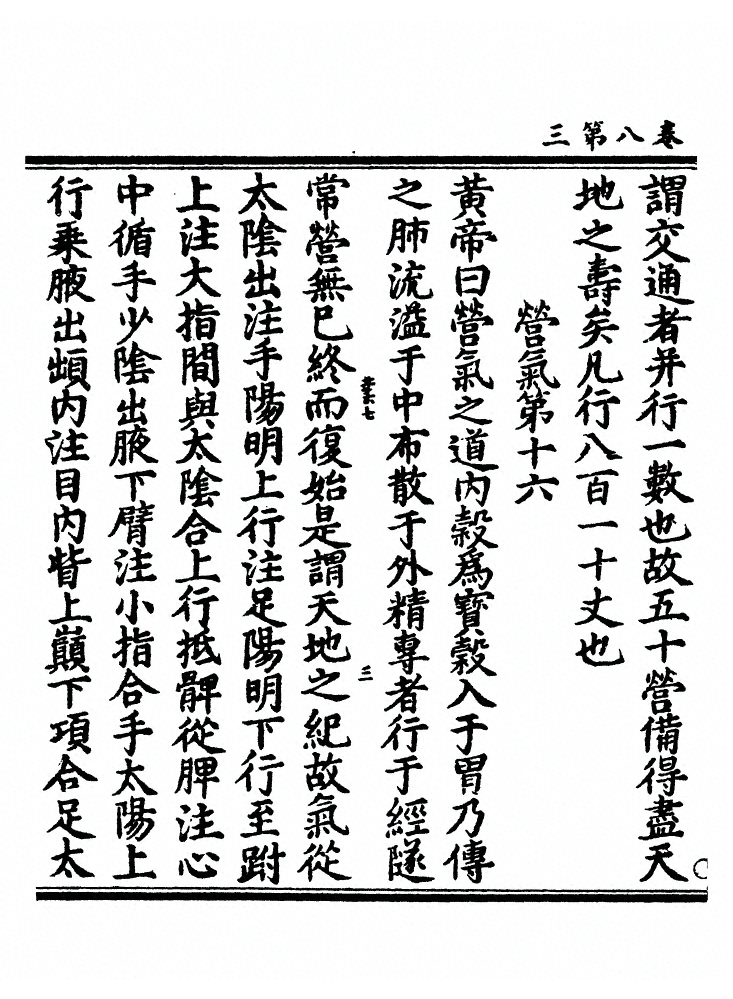 卷八第三
謂交通者并行一數也故五十營備得盡天
地之壽矣凡行八百一十丈也
營氣第十六
黃帝曰營氣之道內穀爲寶穀入于胃乃傳
之肺流溢于中布散于外精專者行于經隧
常營無已終而復始是謂天地之紀故氣從
太陰出注手陽明上行注足陽明下行至跗
上注大指間與太陰合上行抵髀從脾注心
中循手少陰出腋下臂注小指合手太陽上
行乗腋出䪼內注目內眥上巔下項合足太
三